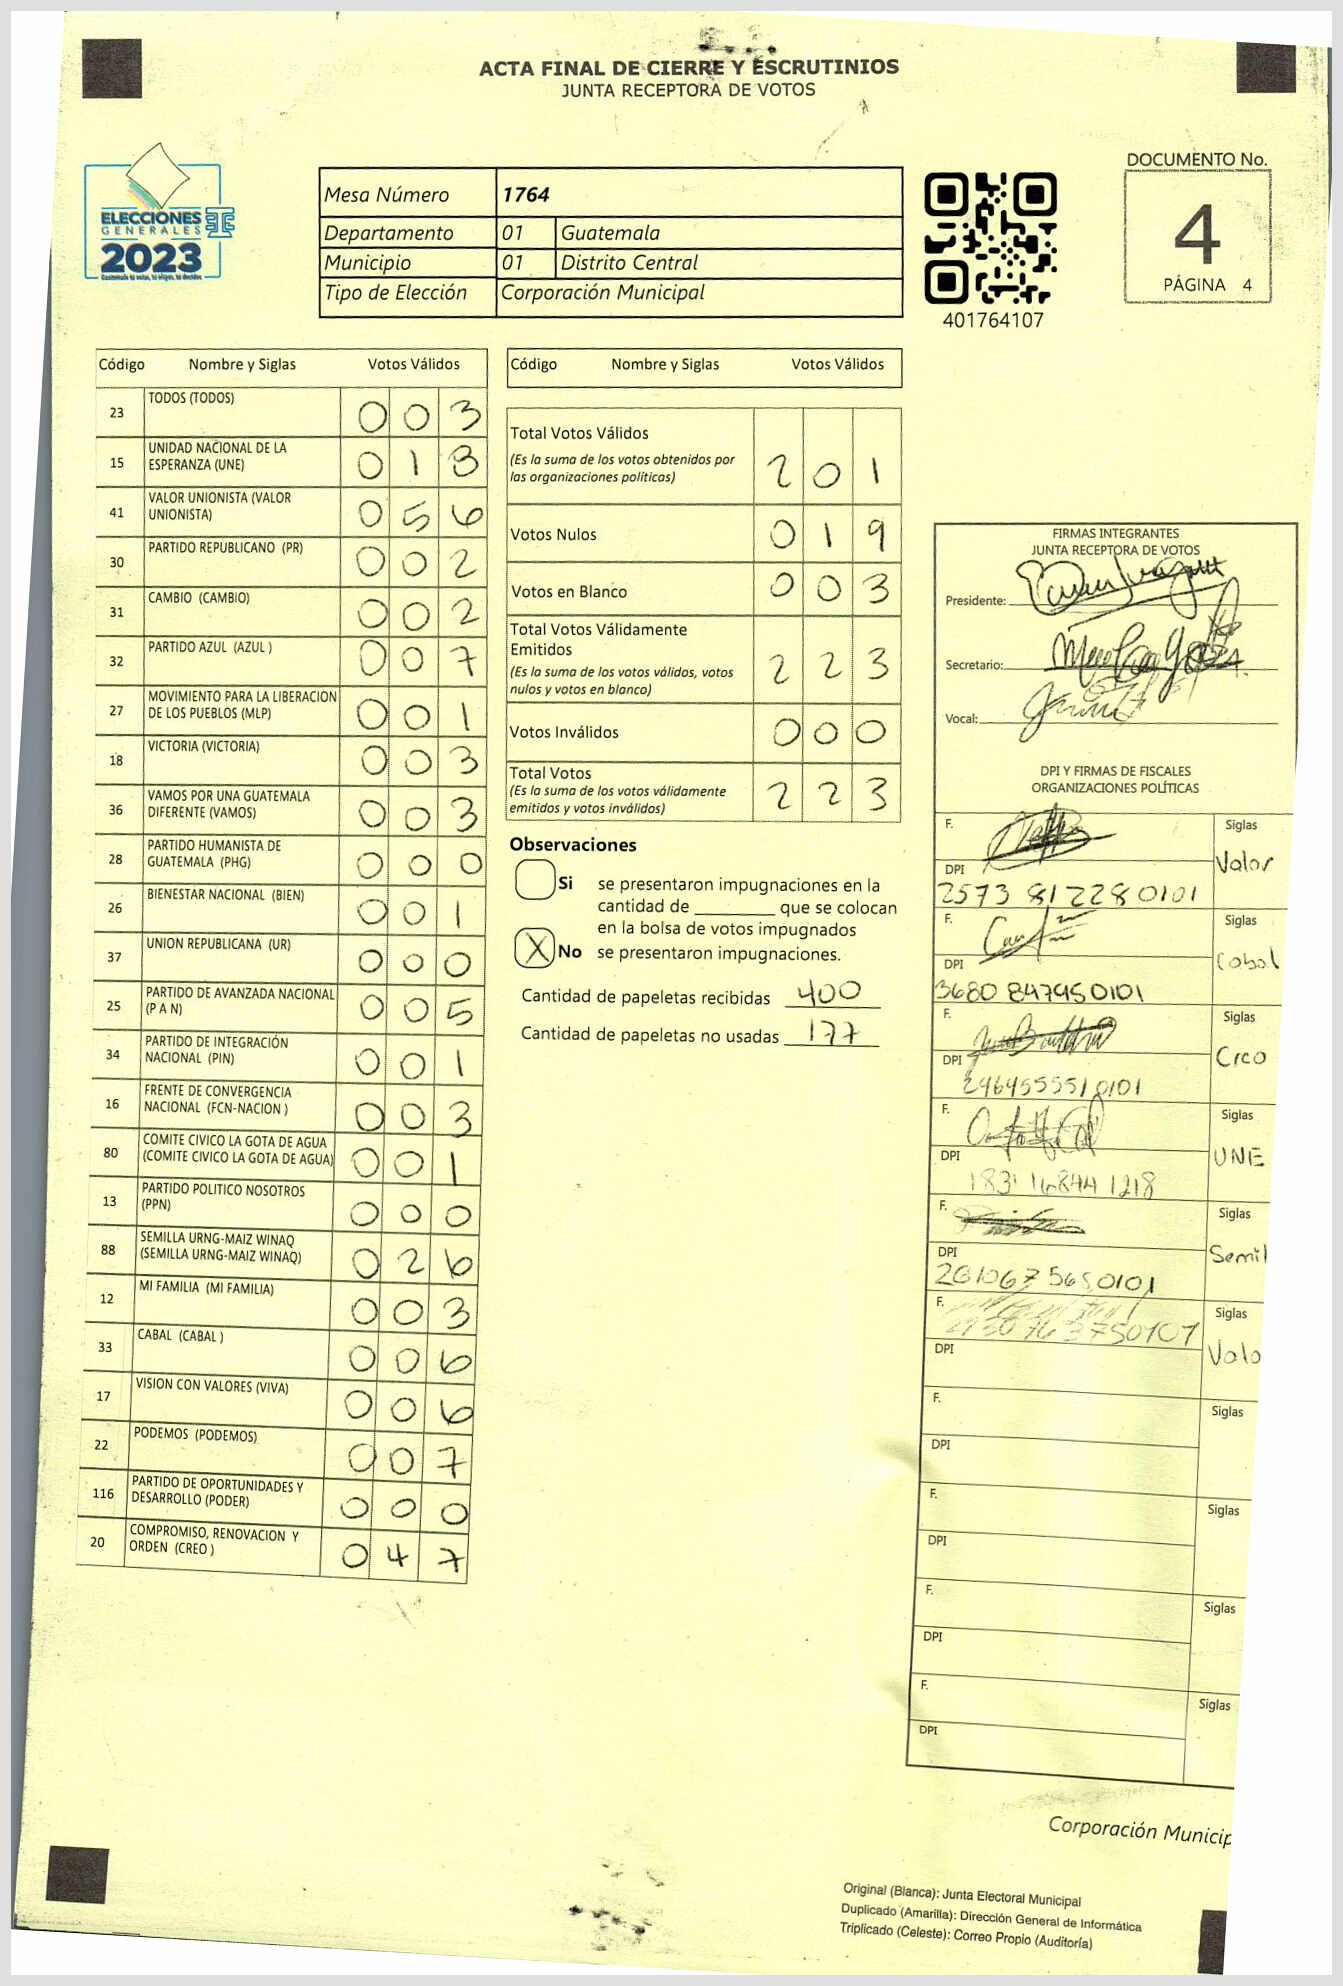 ACTA FINAL DE CIERRE Y ESCRUTINIOS
JUNTA RECEPTORA DE VOTOS
ELECCIONES
GENERALES
2023
Mesa Número 1764
Departamento 01 Guatemala
Municipio 01 Distrito Central
Tipo de Elección Corporación Municipal
401764107
DOCUMENTO No.
4
PÁGINA 4
Código Nombre y Siglas Votos Válidos
23 TODOS (TODOS) 0 0 3
15 UNIDAD NACIONAL DE LA
ESPERANZA (UNE) 0 1 8
41 VALOR UNIONISTA (VALOR
UNIONISTA) 0 5 6
30 PARTIDO REPUBLICANO (PR) 0 0 2
31 CAMBIO (CAMBIO) 0 0 2
32 PARTIDO AZUL (AZUL ) 0 0 7
27 MOVIMIENTO PARA LA LIBERACION
DE LOS PUEBLOS (MLP) 0 0 1
18 VICTORIA (VICTORIA) 0 0 3
36 VAMOS POR UNA GUATEMALA
DIFERENTE (VAMOS) 0 0 3
28 PARTIDO HUMANISTA DE
GUATEMALA (PHG) 0 0 0
26 BIENESTAR NACIONAL (BIEN) 0 0 1
37 UNION REPUBLICANA (UR) 0 0 0
25 PARTIDO DE AVANZADA NACIONAL
(P A N) 0 0 5
34 PARTIDO DE INTEGRACIÓN
NACIONAL (PIN) 0 0 1
16 FRENTE DE CONVERGENCIA
NACIONAL (FCN-NACION ) 0 0 3
80 COMITE CIVICO LA GOTA DE AGUA
(COMITE CIVICO LA GOTA DE AGUA) 0 0 1
13 PARTIDO POLITICO NOSOTROS
(PPN) 0 0 0
88 SEMILLA URNG-MAIZ WINAQ
(SEMILLA URNG-MAIZ WINAQ) 0 2 6
12 MI FAMILIA (MI FAMILIA) 0 0 3
33 CABAL (CABAL ) 0 0 6
17 VISION CON VALORES (VIVA) 0 0 6
22 PODEMOS (PODEMOS) 0 0 7
116 PARTIDO DE OPORTUNIDADES Y
DESARROLLO (PODER) 0 0 0
20 COMPROMISO, RENOVACION Y
ORDEN (CREO ) 0 4 7
Código Nombre y Siglas Votos Válidos
Total Votos Válidos
(Es la suma de los votos obtenidos por
las organizaciones políticas) 2 0 1
Votos Nulos 0 1 9
Votos en Blanco 0 0 3
Total Votos Válidamente
Emitidos
(Es la suma de los votos válidos, votos
nulos y votos en blanco) 2 2 3
Votos Inválidos 0 0 0
Total Votos
(Es la suma de los votos válidamente
emitidos y votos inválidos) 2 2 3
Observaciones
Si se presentaron impugnaciones en la
cantidad de ________ que se colocan
en la bolsa de votos impugnados
X No se presentaron impugnaciones.
Cantidad de papeletas recibidas 400
Cantidad de papeletas no usadas 177
FIRMAS INTEGRANTES
JUNTA RECEPTORA DE VOTOS
Presidente:
Secretario:
Vocal:
DPI Y FIRMAS DE FISCALES
ORGANIZACIONES POLÍTICAS
F. Siglas
Valor
DPI
2573 81228 0101
F. Siglas
Cabal
DPI
3680 847950101
F. Siglas
Creo
DPI
246455551 0101
F. Siglas
UNE
DPI
1831 16844 1218
F. Siglas
Semil
DPI
F. Siglas
Valo
DPI
F. Siglas
DPI
F. Siglas
DPI
F. Siglas
DPI
F. Siglas
DPI
Corporación Municip
Original (Blanca): Junta Electoral Municipal
Duplicado (Amarilla): Dirección General de Informática
Triplicado (Celeste): Correo Propio (Auditoría)